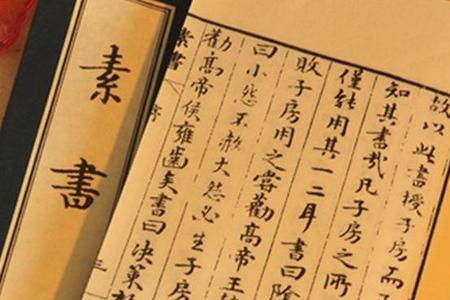 素書
故以此書授子房而
知其書哉凡子房之所
僅能用其一二耳書曰陰
敗子房用之嘗勸高帝王
曰小怨不赦大怨必生子房
勸高帝侯雍齒矣書曰決策於
素書 序 三